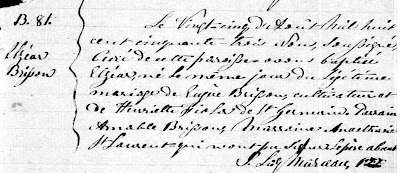 B. 81.
Elzéar
Brisson
Le Vingt-cinq de Août Mil huit
cent cinquante-trois Nous, soussigné,
Curé de cette paroisse avons baptisé
Elzéar, né le même jour du légitime
mariage de Eugène Brisson, cultivateur et
de Henriette de St Germain. Parrain
Amable Brisson, Marraine Anasthasie
St Laurent qui n'ont pu signer. Le père absent
J. Ls. Marceau, Ptre